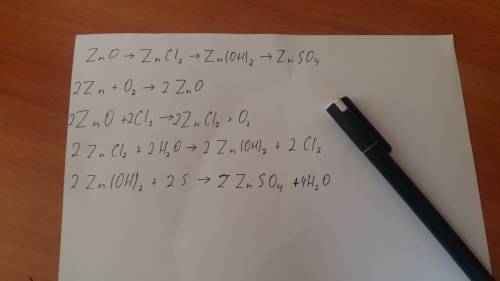 ZnO → ZnCl₂ → Zn(OH)₂ → ZnSO₄
2Zn + O₂ → 2ZnO
2ZnO + 2Cl₂ → 2ZnCl₂ + O₂
2ZnCl₂ + 2H₂O → 2Zn(OH)₂ + 2Cl₂
2Zn(OH)₂ + 2S → 2ZnSO₄ + 4H₂O